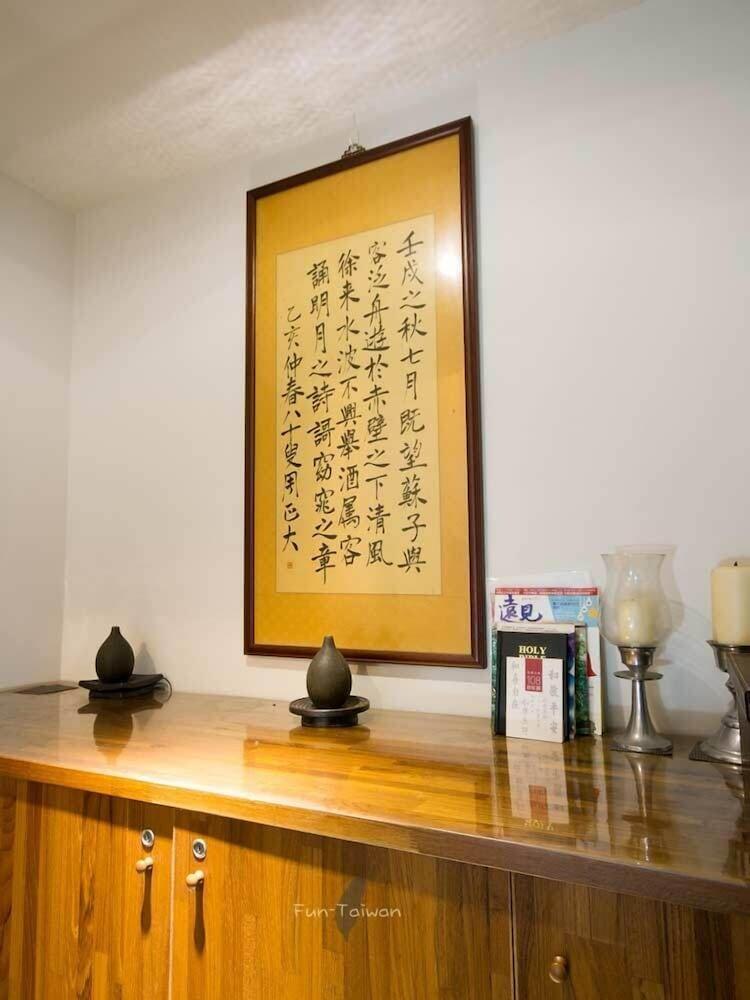 壬戌之秋七月既望蘇子與
客泛舟遊於赤壁之下清風
徐来水波不興舉酒属客
誦明月之詩謌窈窕之章
乙亥仲春八十叟周正大
遠見
HOLY
BIBLE
108
和敬平安
Fun-Taiwan